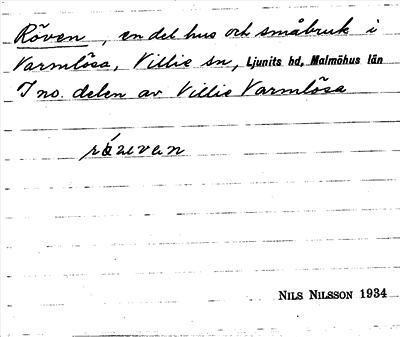 Röven, en del hus och småbruk i
Varmlösa, Villie sn, Ljunits hd, Malmöhus län
I no. delen av Villie Varmlösa
NILS NILSSON 1934